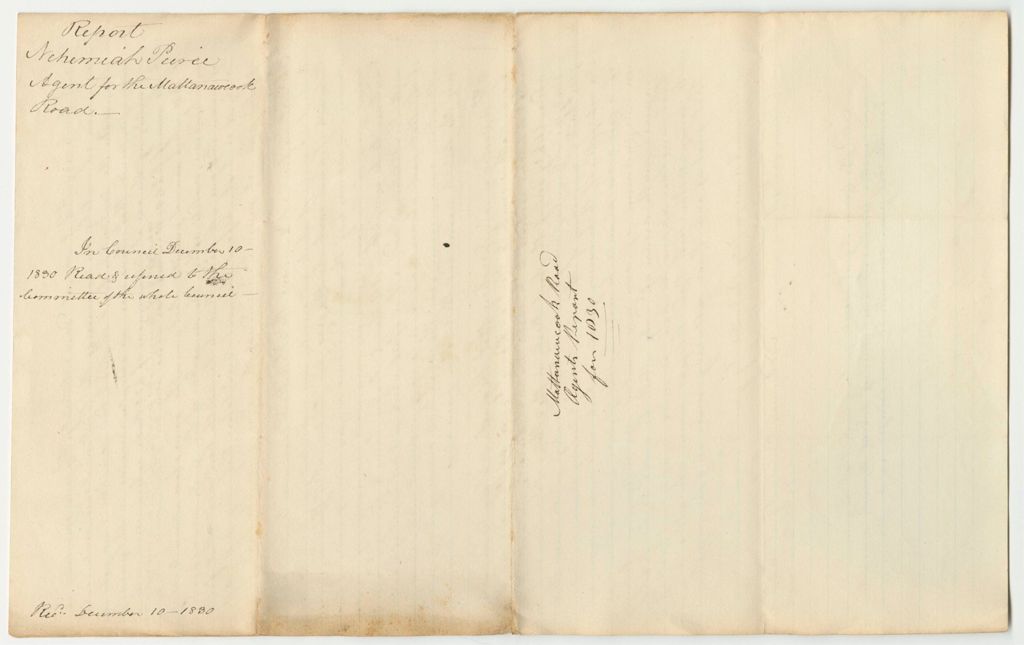 Report
Nehemiah Peirce
Agent for the Mattanawcook
Road.—
In Council December 10—
1830 Read & referred to the
Committee of the whole Council—
Recd. December 10—1830
Mattanawcook Road
Agents Report
for 1830